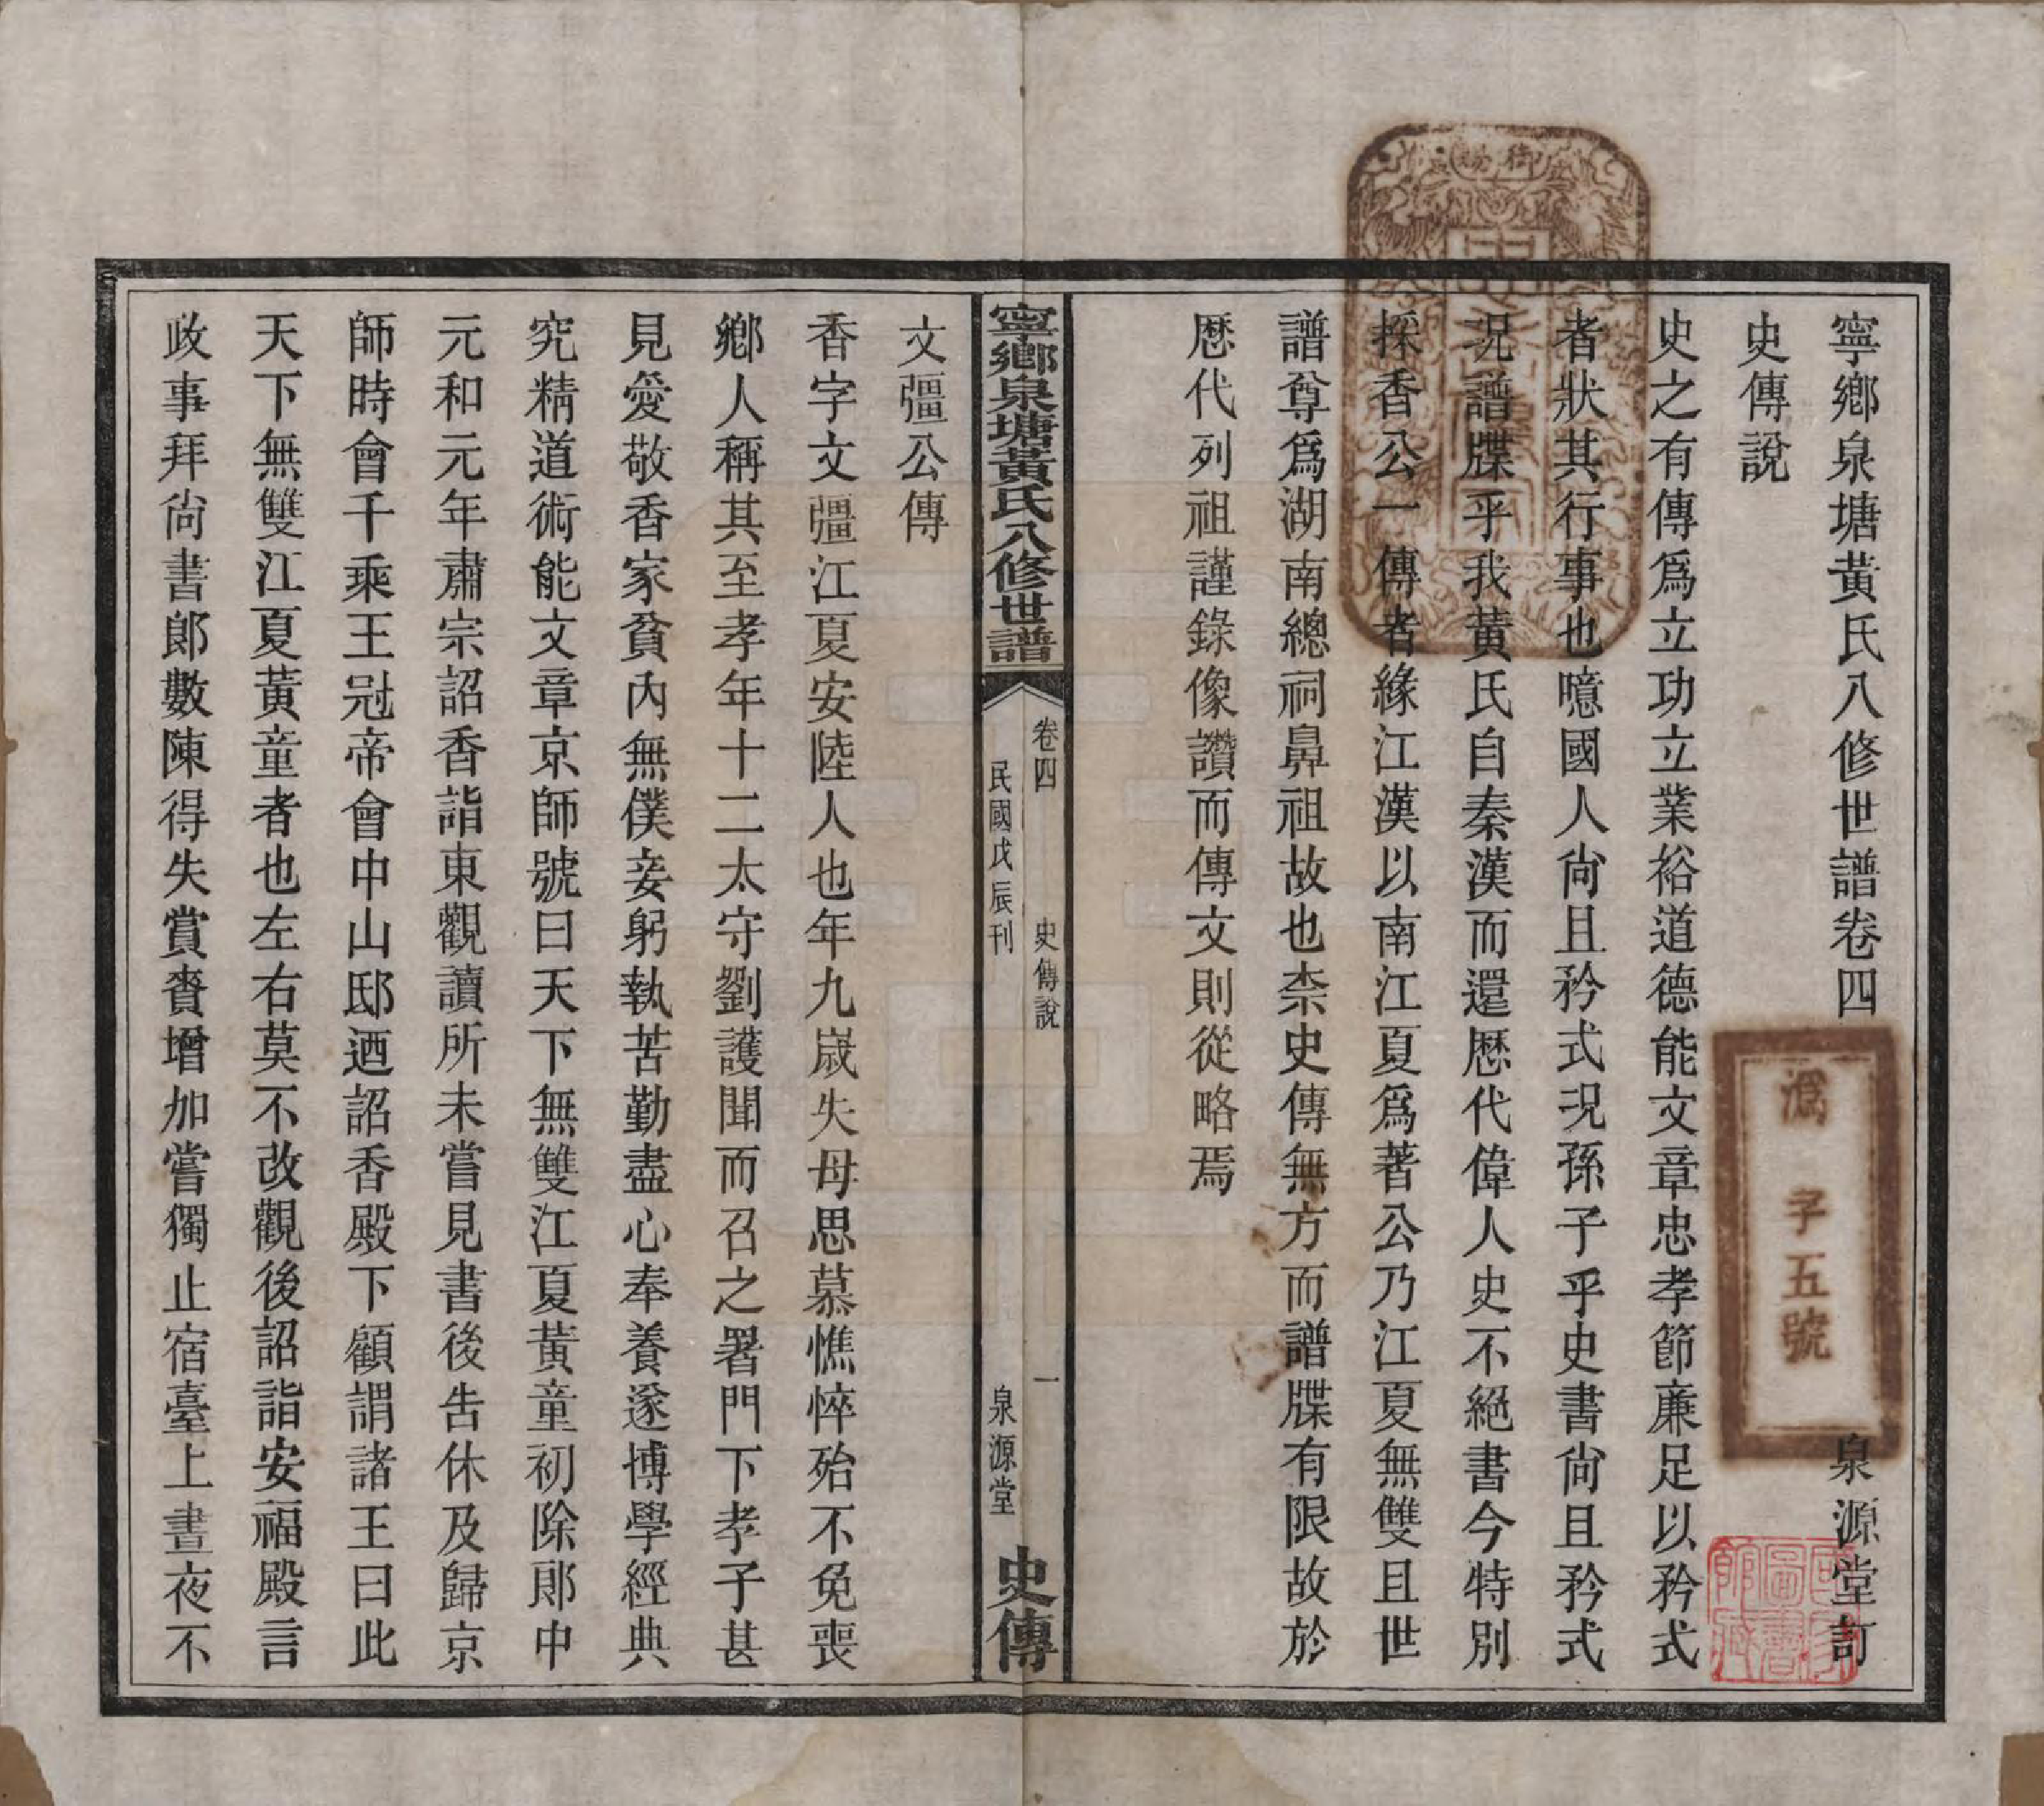 寧鄉泉塘黃氏八修世譜卷四
泉源堂訂
史傳說
史之有傳爲立功立業裕道德能文章忠孝節廉足以矜式
者狀其行事也噫國人尙且矜式況孫子乎史書尙且矜式
況譜牒乎我黃氏自秦漢而還歷代偉人史不絕書今特別
採香公一傳者緣江漢以南江夏爲著公乃江夏無雙且世
譜尊爲湖南總祠鼻祖故也柰史傳無方而譜牒有限故於
歷代列祖謹錄像讚而傳文則從略焉
寧鄉泉塘黃氏八修世譜
卷四
史傳說
一
民國戊辰刊
泉源堂
史傳
文彊公傳
香字文彊江夏安陸人也年九歲失母思慕憔悴殆不免喪
鄉人稱其至孝年十二太守劉護聞而召之署門下孝子甚
見愛敬香家貧內無僕妾躬執苦勤盡心奉養遂博學經典
究精道術能文章京師號曰天下無雙江夏黃童初除郎中
元和元年肅宗詔香詣東觀讀所未嘗見書後告休及歸京
師時會千乘王冠帝會中山邸迺詔香殿下顧謂諸王曰此
天下無雙江夏黃童者也左右莫不改觀後詔詣安福殿言
政事拜尙書郎數陳得失賞賚增加嘗獨止宿臺上晝夜不
御賜
溈
字五號